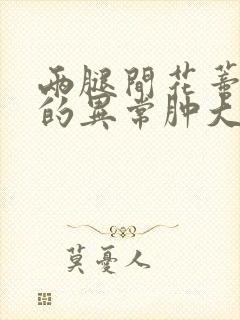 兩腿間花蒂
的異常肿大
莫憂人